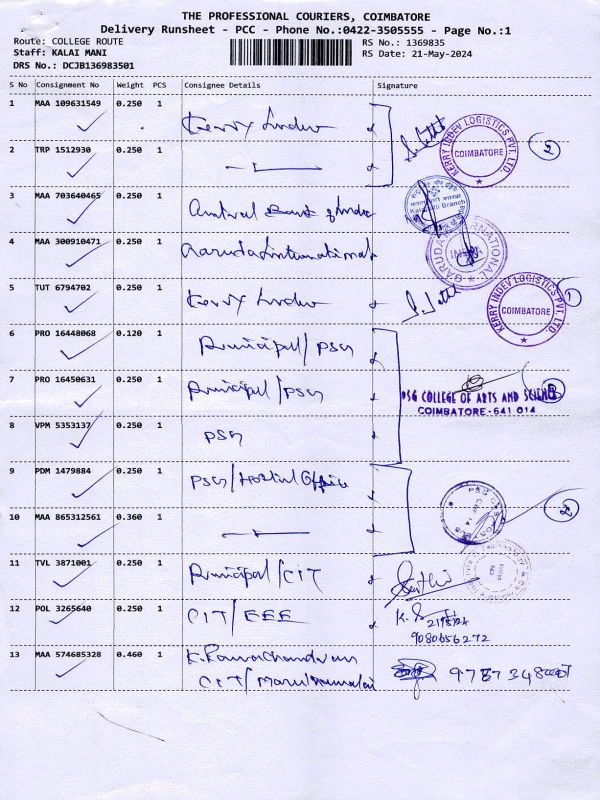 THE PROFESSIONAL COURIERS, COIMBATORE
Delivery Runsheet - PCC - Phone No.:0422-3505555 - Page No.:1
Route: COLLEGE ROUTE
RS No.: 1369835
Staff: KALAI MANI
RS Date: 21-May-2024
DRS No.: DCJB136983501
S No Consignment No Weight PCS Consignee Details Signature
1 MAA 109631549 0.250 1 Kerry Indev
KERRY INDEV LOGISTICS PVT. LTD. COIMBATORE 2
2 TRP 1512930 0.250 1
3 MAA 703640465 0.250 1 Bank of India
4 MAA 300910471 0.250 1 Garuda International
GARUDA INTERNATIONAL INDIA
5 TUT 6794702 0.250 1 Kerry Indev
KERRY INDEV LOGISTICS PVT. LTD. COIMBATORE 1
6 PRO 16448068 0.120 1 Principal / PSG
7 PRO 16450631 0.250 1 Principal / PSG
PSG COLLEGE OF ARTS AND SCIENCE
COIMBATORE - 641 014
8 VPM 5353137 0.250 1 PSG
9 PDM 1479884 0.250 1 PSG / Hostel Office
10 MAA 865312561 0.360 1
2
11 TVL 3871001 0.250 1 Principal / CIT
12 POL 3265640 0.250 1 CIT / EEE
21/5/24
9080656272
13 MAA 574685328 0.460 1 K. Ramachandran
CIT / Marudhamalai